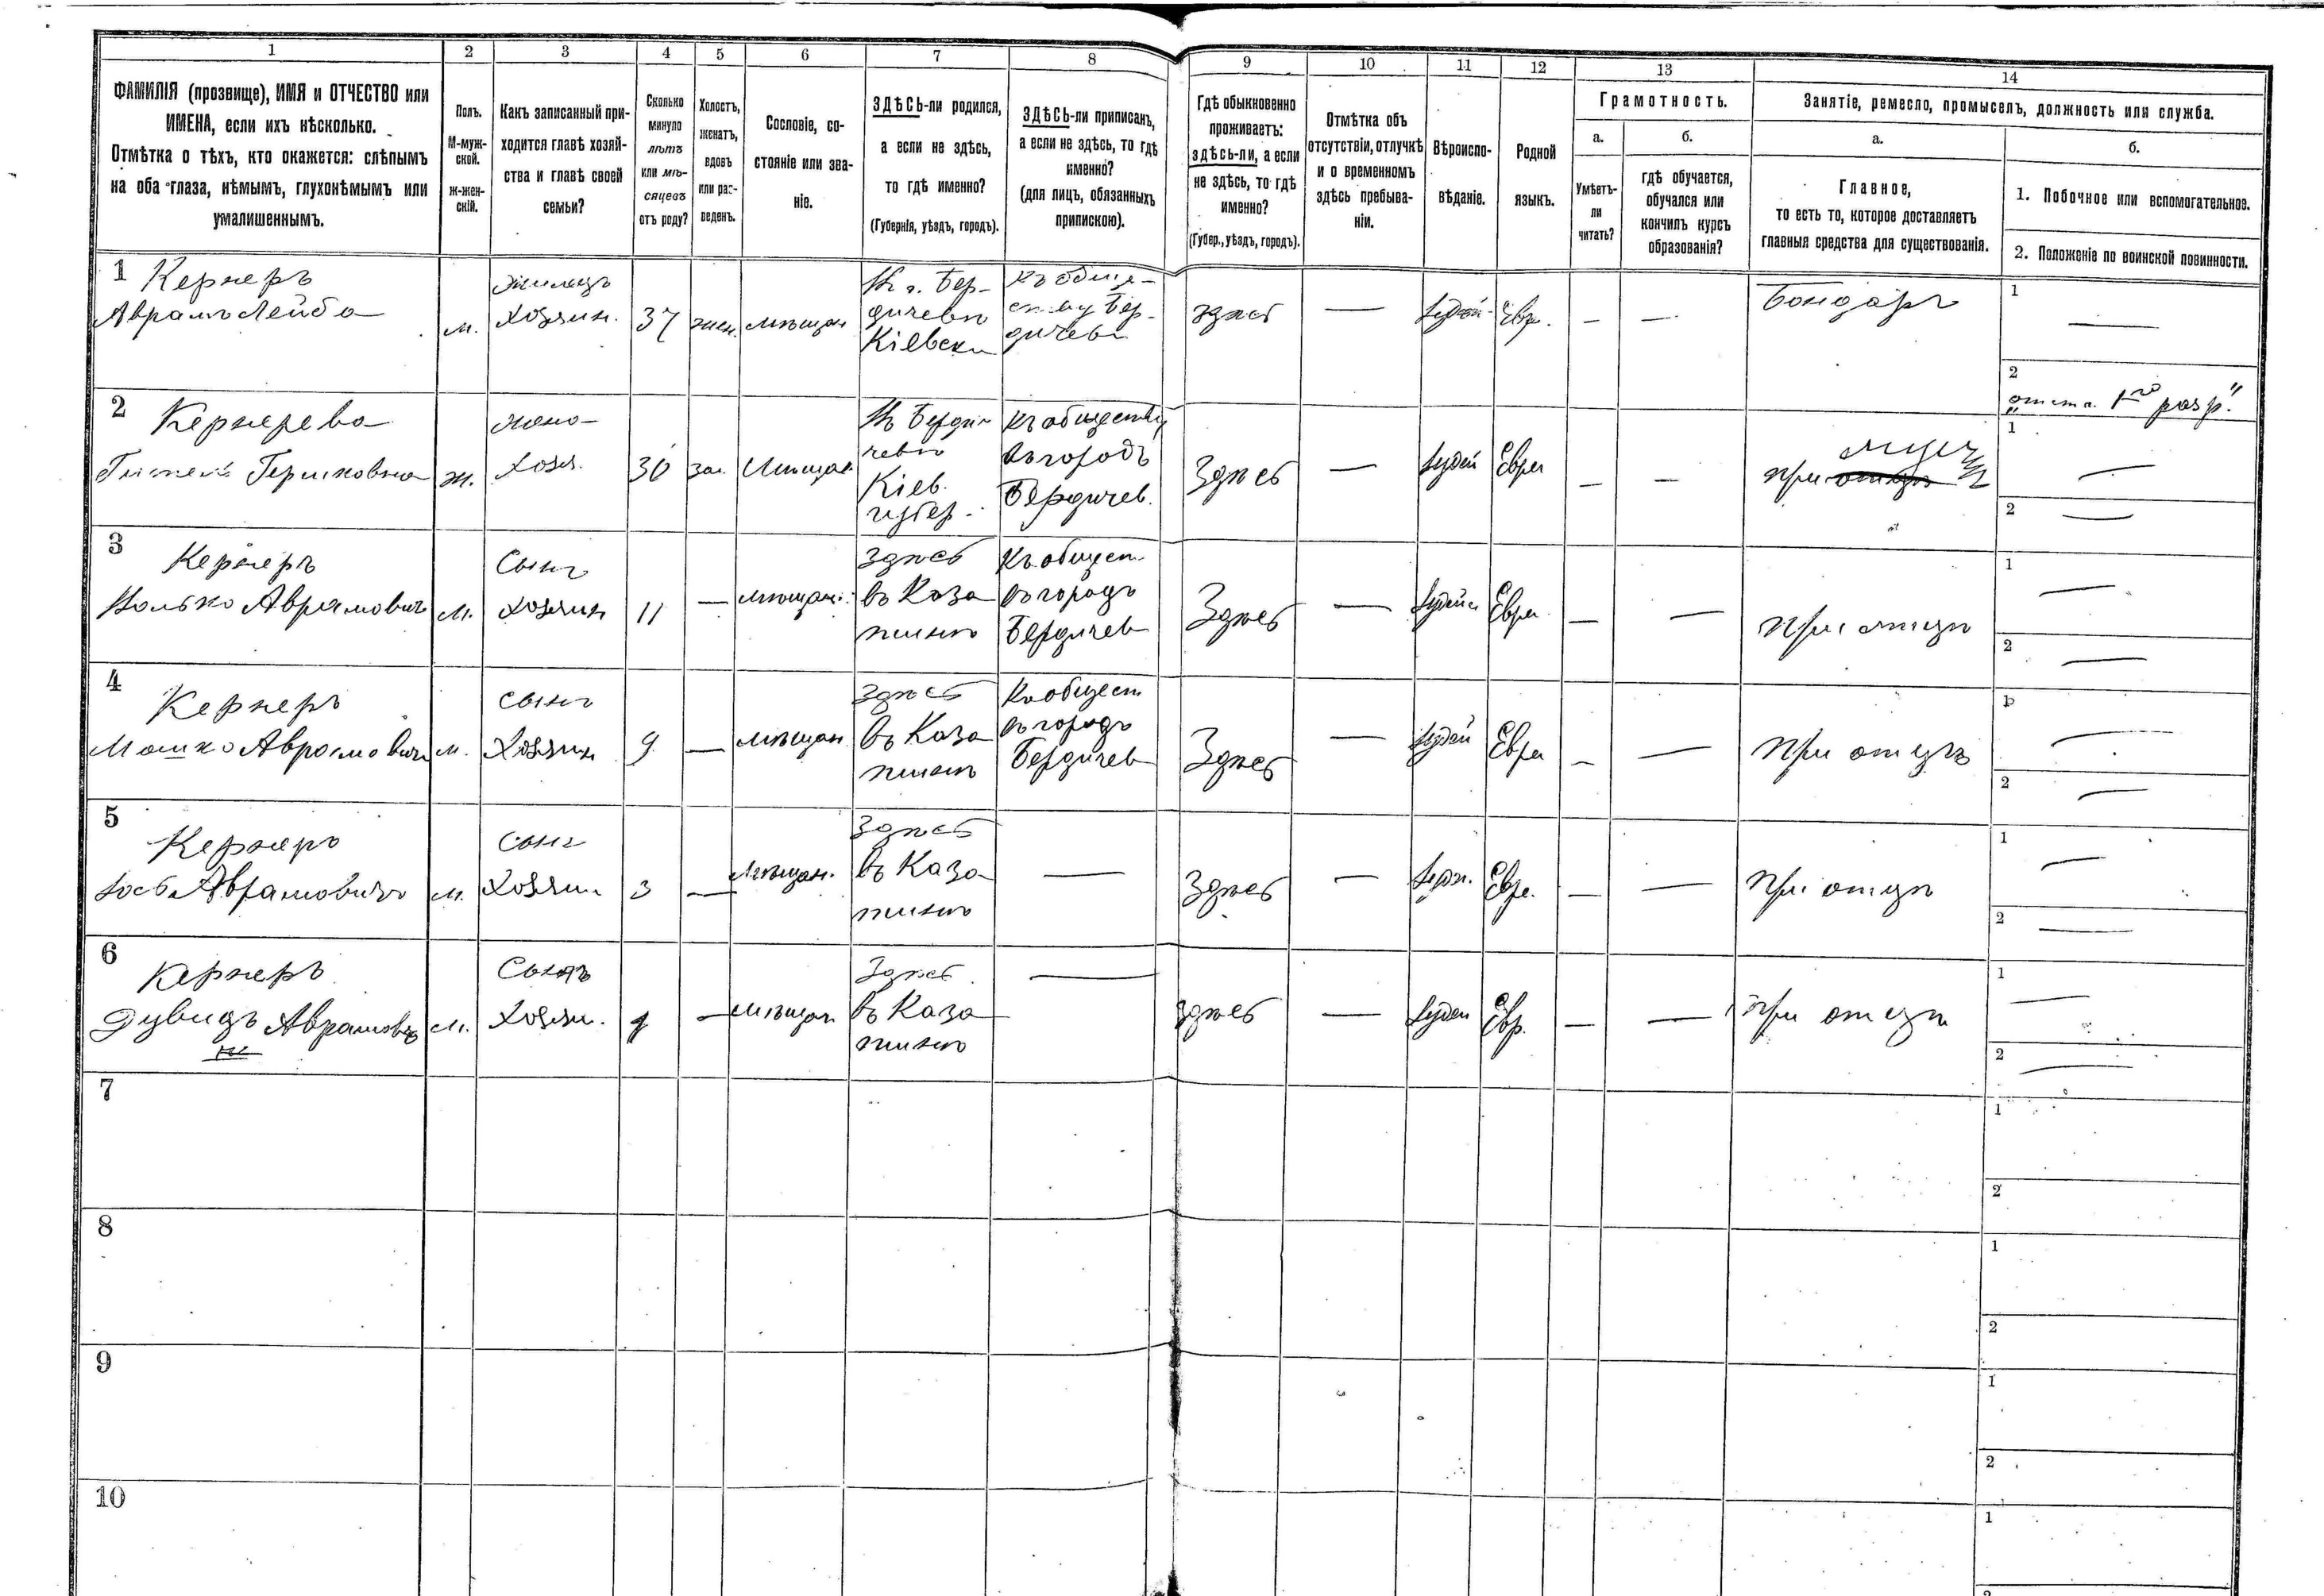 1 2 3 4 5 6 7 8 9 10 11 12 13 14
ФАМИЛІЯ (прозвище), ИМЯ и ОТЧЕСТВО или
ИМЕНА, если ихъ нѣсколько.
Отмѣтка о тѣхъ, кто окажется: слѣпымъ
на оба глаза, нѣмымъ, глухонѣмымъ или
умалишеннымъ.
Полъ.
М-муж-
ской.
ж-жен-
скій.
Какъ записанный при-
ходится главѣ хозяй-
ства и главѣ своей
семьи?
Сколько
минуло
лѣтъ
или мѣ-
сяцевъ
отъ роду?
Холостъ,
женатъ,
вдовъ
или раз-
веденъ.
Сословіе, со-
стояніе или зва-
ніе.
ЗДѢСЬ-ли родился,
а если не здѣсь,
то гдѣ именно?
(Губернія, уѣздъ, городъ).
ЗДѢСЬ-ли приписанъ,
а если не здѣсь, то гдѣ
именно?
(для лицъ, обязанныхъ
припискою).
Гдѣ обыкновенно
проживаетъ:
здѣсь-ли, а если
не здѣсь, то гдѣ
именно?
(Губер., уѣздъ, городъ).
Отмѣтка объ
отсутствіи, отлучкѣ
и о временномъ
здѣсь пребыва-
ніи.
Вѣроиспо-
вѣданіе.
Родной
языкъ.
Грамотность.
а.
Умѣетъ-
ли
читать?
б.
гдѣ обучается,
обучался или
кончилъ курсъ
образованія?
Занятіе, ремесло, промыселъ, должность или служба.
а.
Главное,
то есть то, которое доставляетъ
главныя средства для существованія.
б.
1. Побочное или вспомогательное.
2. Положеніе по воинской повинности.
1 Кернеръ
Аврамъ Лейба
м.
Хозяин.
37
жен.
мѣщан
Бер-
дичевѣ
Кіевск
къ обще-
ству Бер-
дичев
здѣсь
—
Іудей
Евр.
—
—
Бондарь
1
—
2
1го разр."
2 Кернерева
Гершковна
ж.
жена
Хозя.
30
за.
Мѣщан
Берди
чевѣ
Кіев.
губер.
Къ обществу
въ городъ
Бердичев.
Здѣсь
—
Іудей
Евре
—
—
при мужѣ
1
—
2
—
3 Кернеръ
Аврамович
м.
Сынъ
хозяин
11
—
мѣщан.
здѣсь
въ Каза
тинѣ
Къ общест
въ городъ
Бердичев
Здѣсь
—
Іудей
Евре
—
—
при отцѣ
1
—
2
—
4 Кернеръ
Мошко Аврамович
м.
сынъ
Хозяин
9
—
мѣщан
здѣсь
въ Каза
тинѣ
Къ общест
въ городъ
Бердичев
Здѣсь
—
Іудей
Евре
—
—
при отцѣ
1
—
2
—
5 Кернеръ
Іось Аврамовичъ
м.
сынъ
Хозяин
3
—
Мѣщан.
Здѣсь
въ Каза
тинѣ
—
Здѣсь
—
Іудей.
Евре.
—
—
при отцѣ
1
—
2
—
6 Кернеръ
Дувидъ Аврамовъ
м.
Сынъ
Хозяи.
—
Мѣщан
Здѣсь
въ Каза
тинѣ
—
здѣсь
—
Іудей
Евр.
—
—
при отцѣ
1
—
2
—
7
1
2
8
1
2
9
1
2
10
1